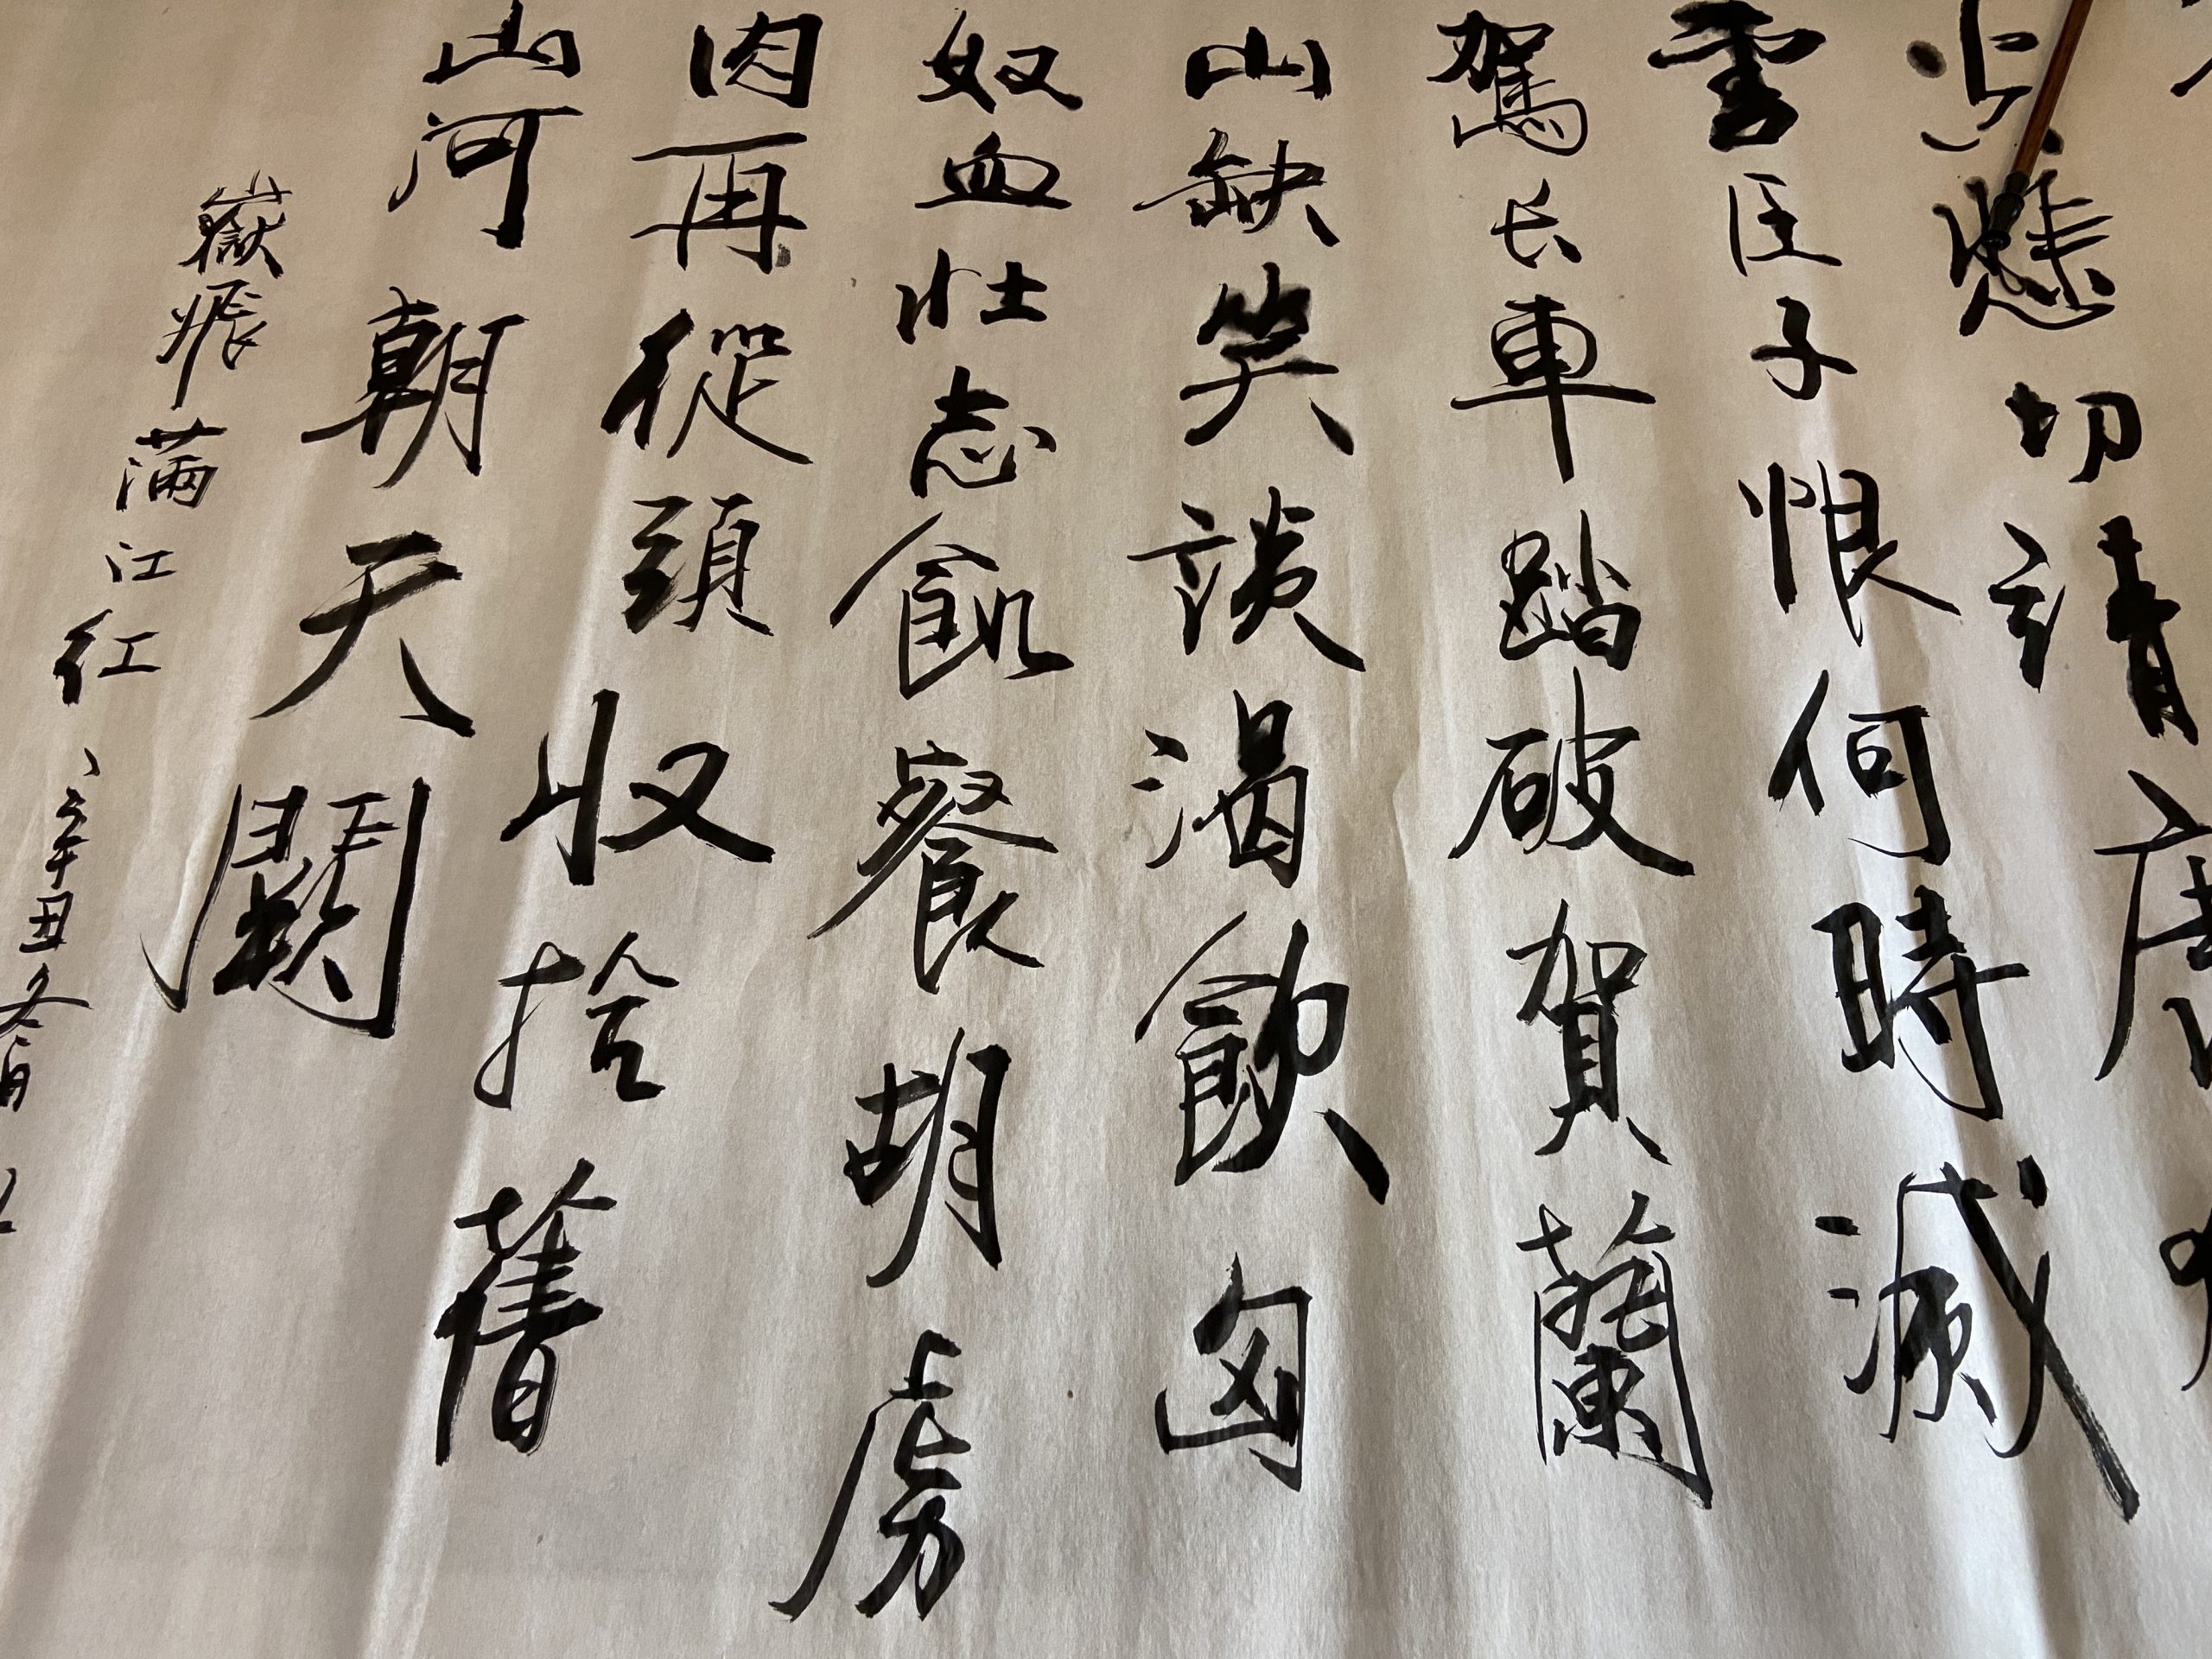 悲切靖康
雪臣子恨何時滅
駕长車踏破賀蘭
山缺笑談渴飲匈
奴血壯志飢餐胡虏
肉再從頭收拾舊
山河朝天闕
嶽飛滿江红、辛丑冬月